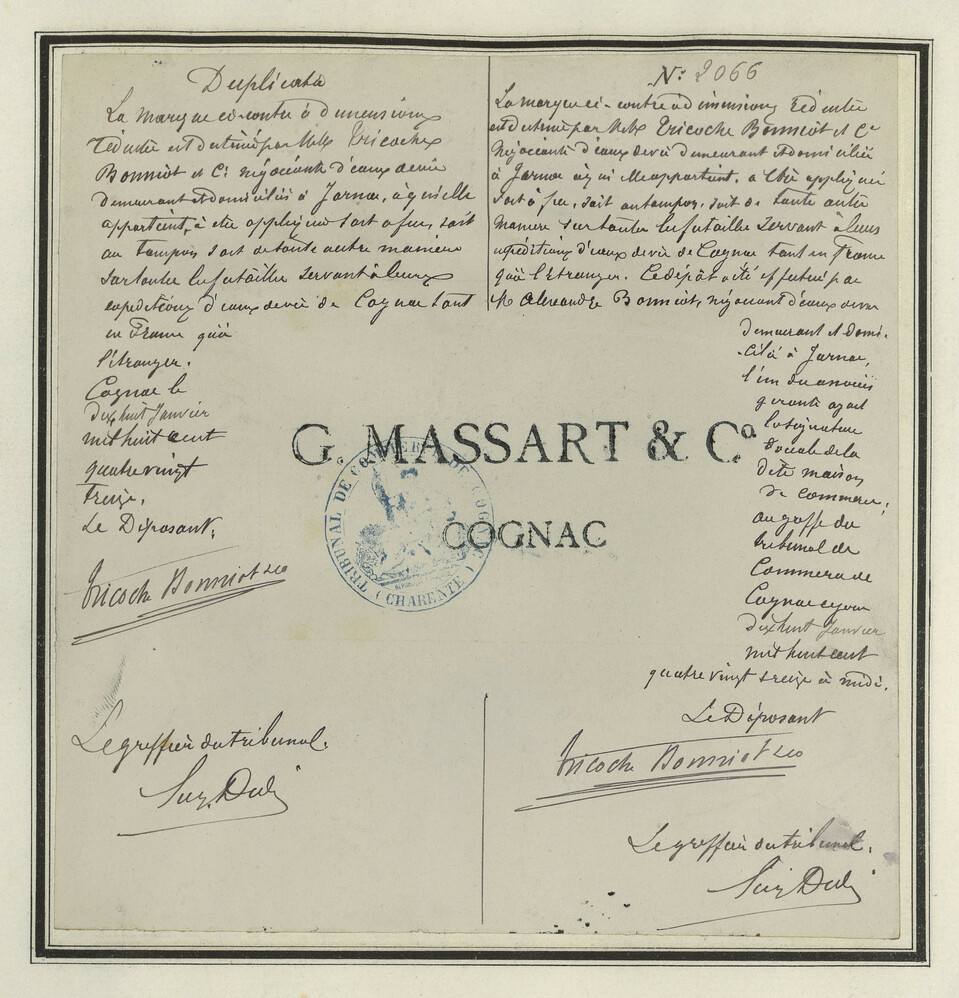 Duplicata
La marque ci-contre à dimensions
réduite est destiné par MM. Tricoche
Bonniot et Cie négociants d'eaux de vie
demeurant et domiciliés à Jarnac, à qui elle
appartient, à été appliquée soit à feu, soit
au tampon soit de toute autre manière
sur toutes les futailles servant à leurs
expéditions d'eaux de vie de Cognac tant
en France qu'à
l'étranger.
Cognac le
dix huit Janvier
mil huit cent
quatre vingt
treize.
Le Déposant.
Tricoche Bonniot & Co
Le greffier du tribunal.
G. MASSART & Co.
COGNAC
TRIBUNAL DE COMMERCE DE COGNAC (CHARENTE)
No: 2066
La marque ci-contre à dimensions réduite
est destiné par MM. Tricoche Bonniot et Cie
Négociants d'eaux de vie demeurant et domiciliés
à Jarnac à qui elle appartient, a été appliquée
soit à feu, soit au tampon, soit de toute autre
manière sur toutes les futailles servant à leurs
expéditions d'eaux de vie de Cognac tant en France
qu'à l'étranger. Ce dépôt a été effectué par
M. Alexandre Bonniot, négociant d'eaux de vie
demeurant et domi-
cilié à Jarnac,
l'un des associés
gérants ayant
la signature
sociale de la
dite maison
de commerce,
au greffe du
tribunal de
Commerce de
Cognac ce jour
dix huit Janvier
mil huit cent
quatre vingt treize à midi.
Le Déposant
Tricoche Bonniot & Co
Le greffier du tribunal.